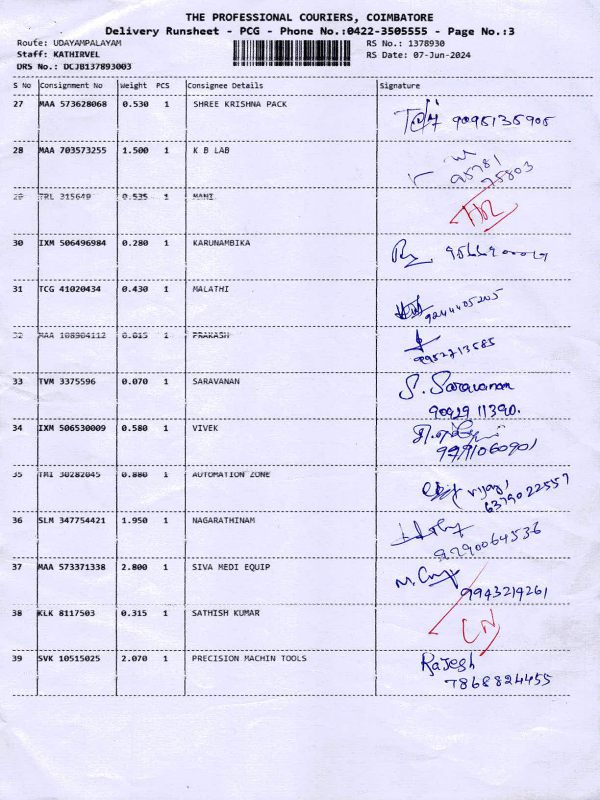 THE PROFESSIONAL COURIERS, COIMBATORE
Delivery Runsheet - PCG - Phone No.:0422-3505555 - Page No.:3
Route: UDAYAMPALAYAM RS No.: 1378930
Staff: KATHIRVEL RS Date: 07-Jun-2024
DRS No.: DCJB137893003
S No Consignment No Weight PCS Consignee Details Signature
27 MAA 573628068 0.530 1 SHREE KRISHNA PACK
9095135905
28 MAA 703573255 1.500 1 K B LAB
95781
75803
29 TRL 315649 0.535 1 MANI
30 IXM 506496984 0.280 1 KARUNAMBIKA
31 TCG 41020434 0.430 1 MALATHI
9244405205
32 MAA 108904112 0.015 1 PRAKASH
9952713585
33 TVM 3375596 0.070 1 SARAVANAN
S. Saravanan
90929 11390.
34 IXM 506530009 0.580 1 VIVEK
9991060901
35 TRI 30282045 0.880 1 AUTOMATION ZONE
6379022557
36 SLM 347754421 1.950 1 NAGARATHINAM
9290064536
37 MAA 573371338 2.800 1 SIVA MEDI EQUIP
9943219261
38 KLK 8117503 0.315 1 SATHISH KUMAR
LN
39 SVK 10515025 2.070 1 PRECISION MACHIN TOOLS
Rajesh
7868824455